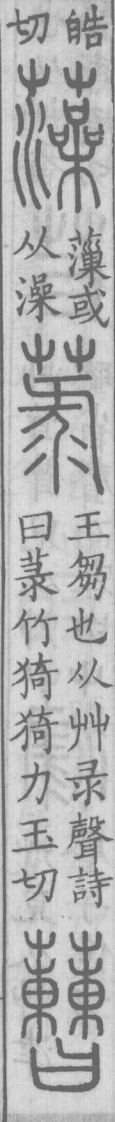 皓
切
藻
薻或
从澡
菉
王芻也从艸录聲詩
曰菉竹猗猗力玉切
蓸